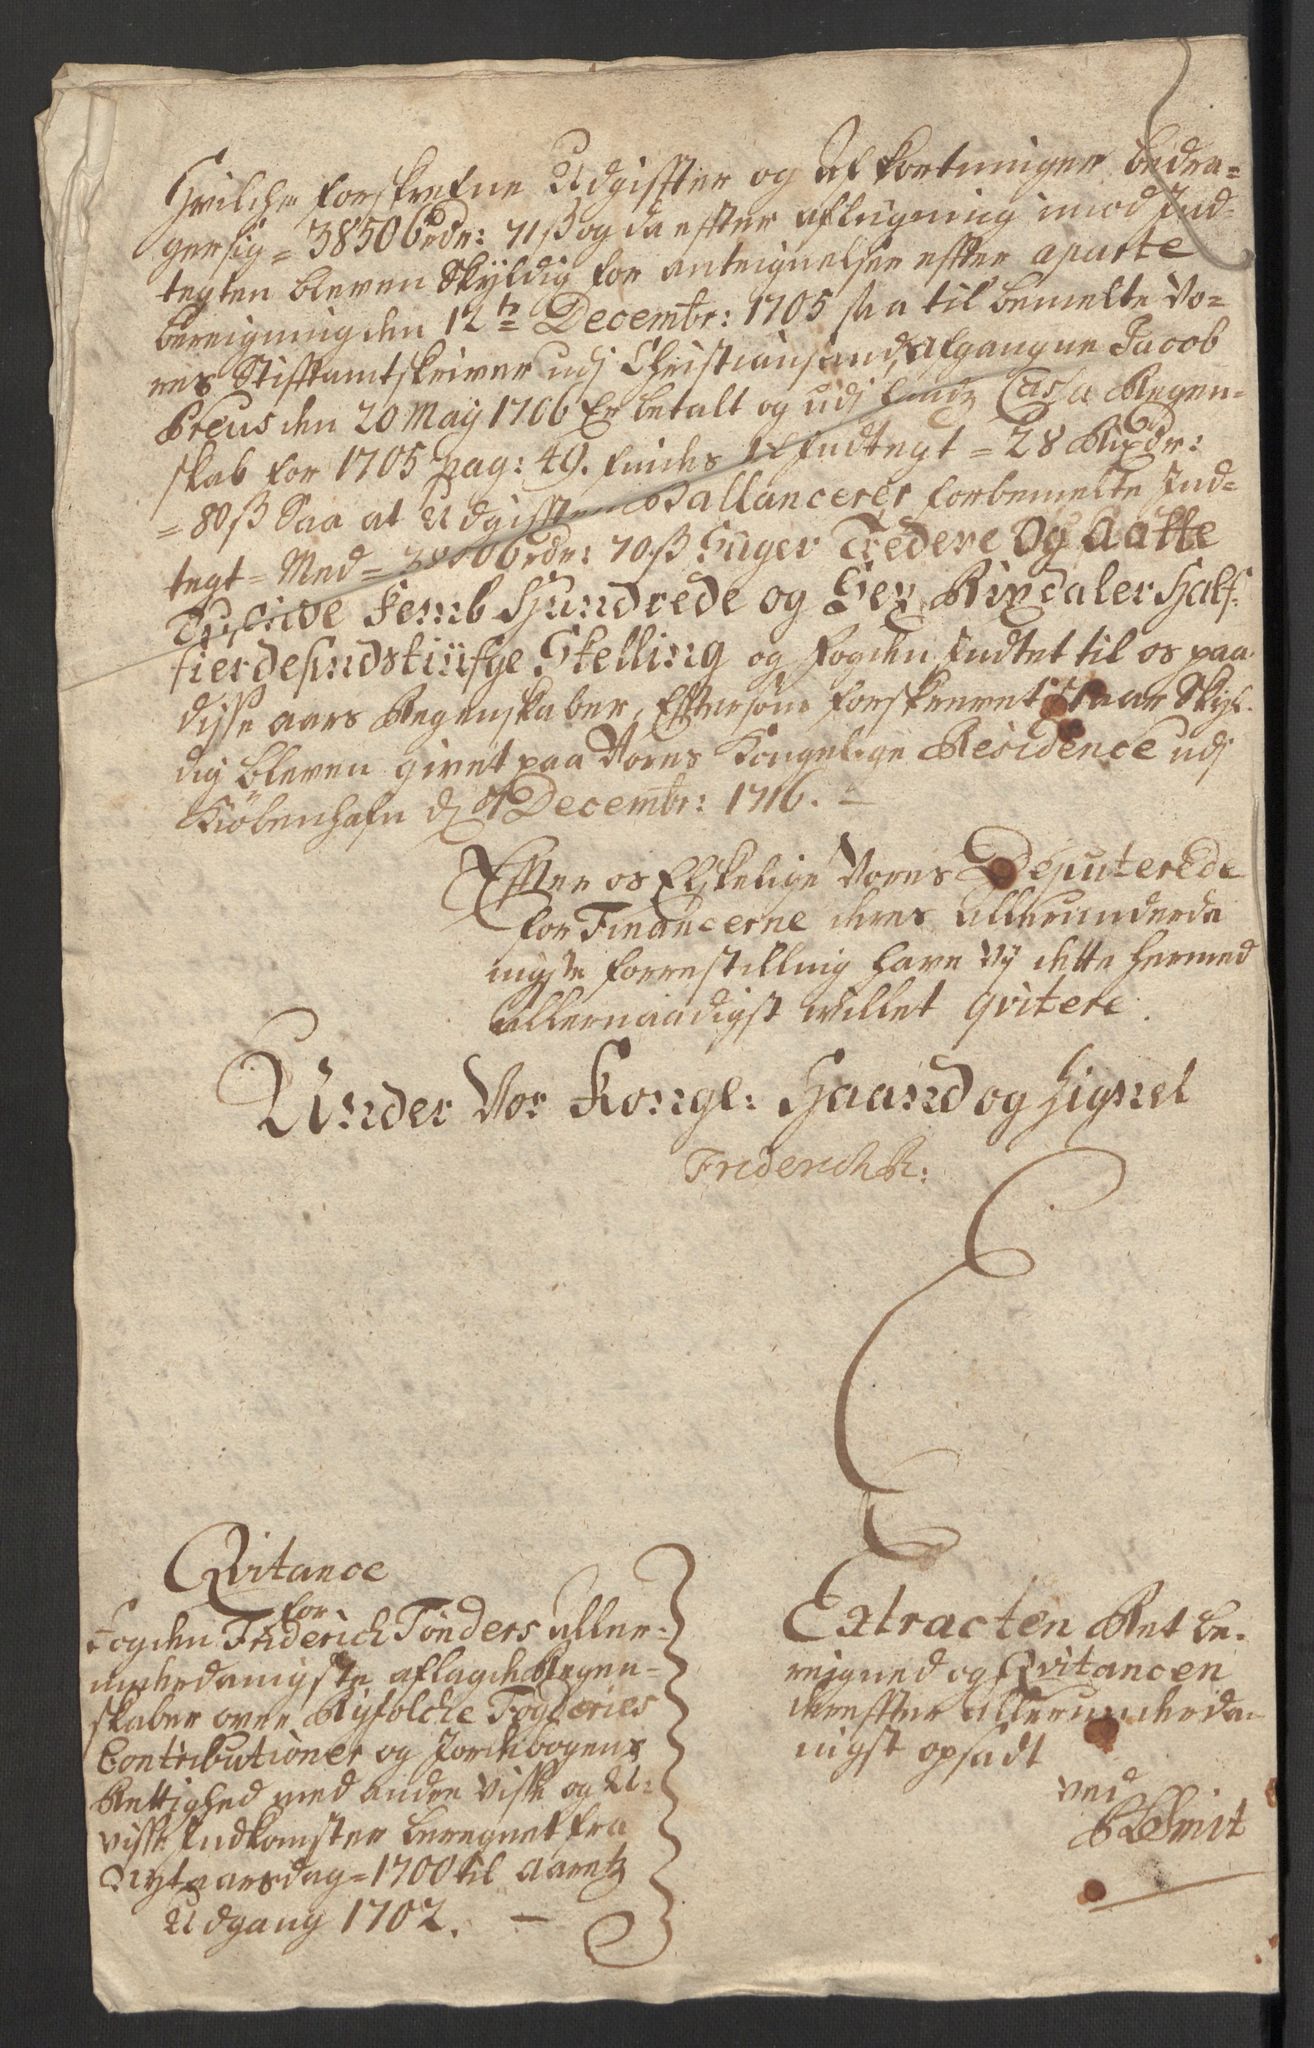 Hvilche forskrefne Udgiffter og Afkortninger bedra=
ger sig = 38506 rdr: 71 ß og da effter afligning imod Ind=
tegten bleven Skyldig for anteignelser effter aparte
bereigning den 12te Decembr: 1705 saa til bemelte Vo=
res Stifftamtskriver udj Christiansand, Afgangne Jacob
Preus den 20 May 1706 Er betalt og udj hands Cassa Regen=
skab for 1705 pag: 49. findes til Indtegt = 28 Rixdr:
= 80 ß Saa at Udgifften Ballancerer forbemelte Ind=
tegt = Med = 38506 rdr: 70 ß Siger Tredeve Og Aatte
Tusinde Femb Hundrede og Sex Rixdaler Half=
fierdesindstiufge Skelling og fogden Indtet til os paa
disse aars Regenskaber, Eftersom forskrevet staar Skyl=
dig bleven givet paa Vores Kongelige Residence udj
Kiöbenhafn d 7 Decembr: 1716.
Effter os Elskelige Vores Deputerede
for Financerne deres Allerunderda
nigste forrestilling have Vj dette hermed
allernaadigst willet qvitere.
Under Vor Kongl: Haand og Signet
Friderich R:
Qvitance
for
Fogden Friderich Tönders aller=
underdanigste aflagde Regen=
skaber over Ryfolche Fogderies
Contributioner og Jordebogens
Rettighed med andre visse og U=
visse Indkomster beregnet fra
Nytaarsdag = 1700 til Aaretz
Udgang 1702.
Extracten Ret be=
reigned og Qvitancen
dereffter allerunderda=
nigst opsadt
ved
Smit